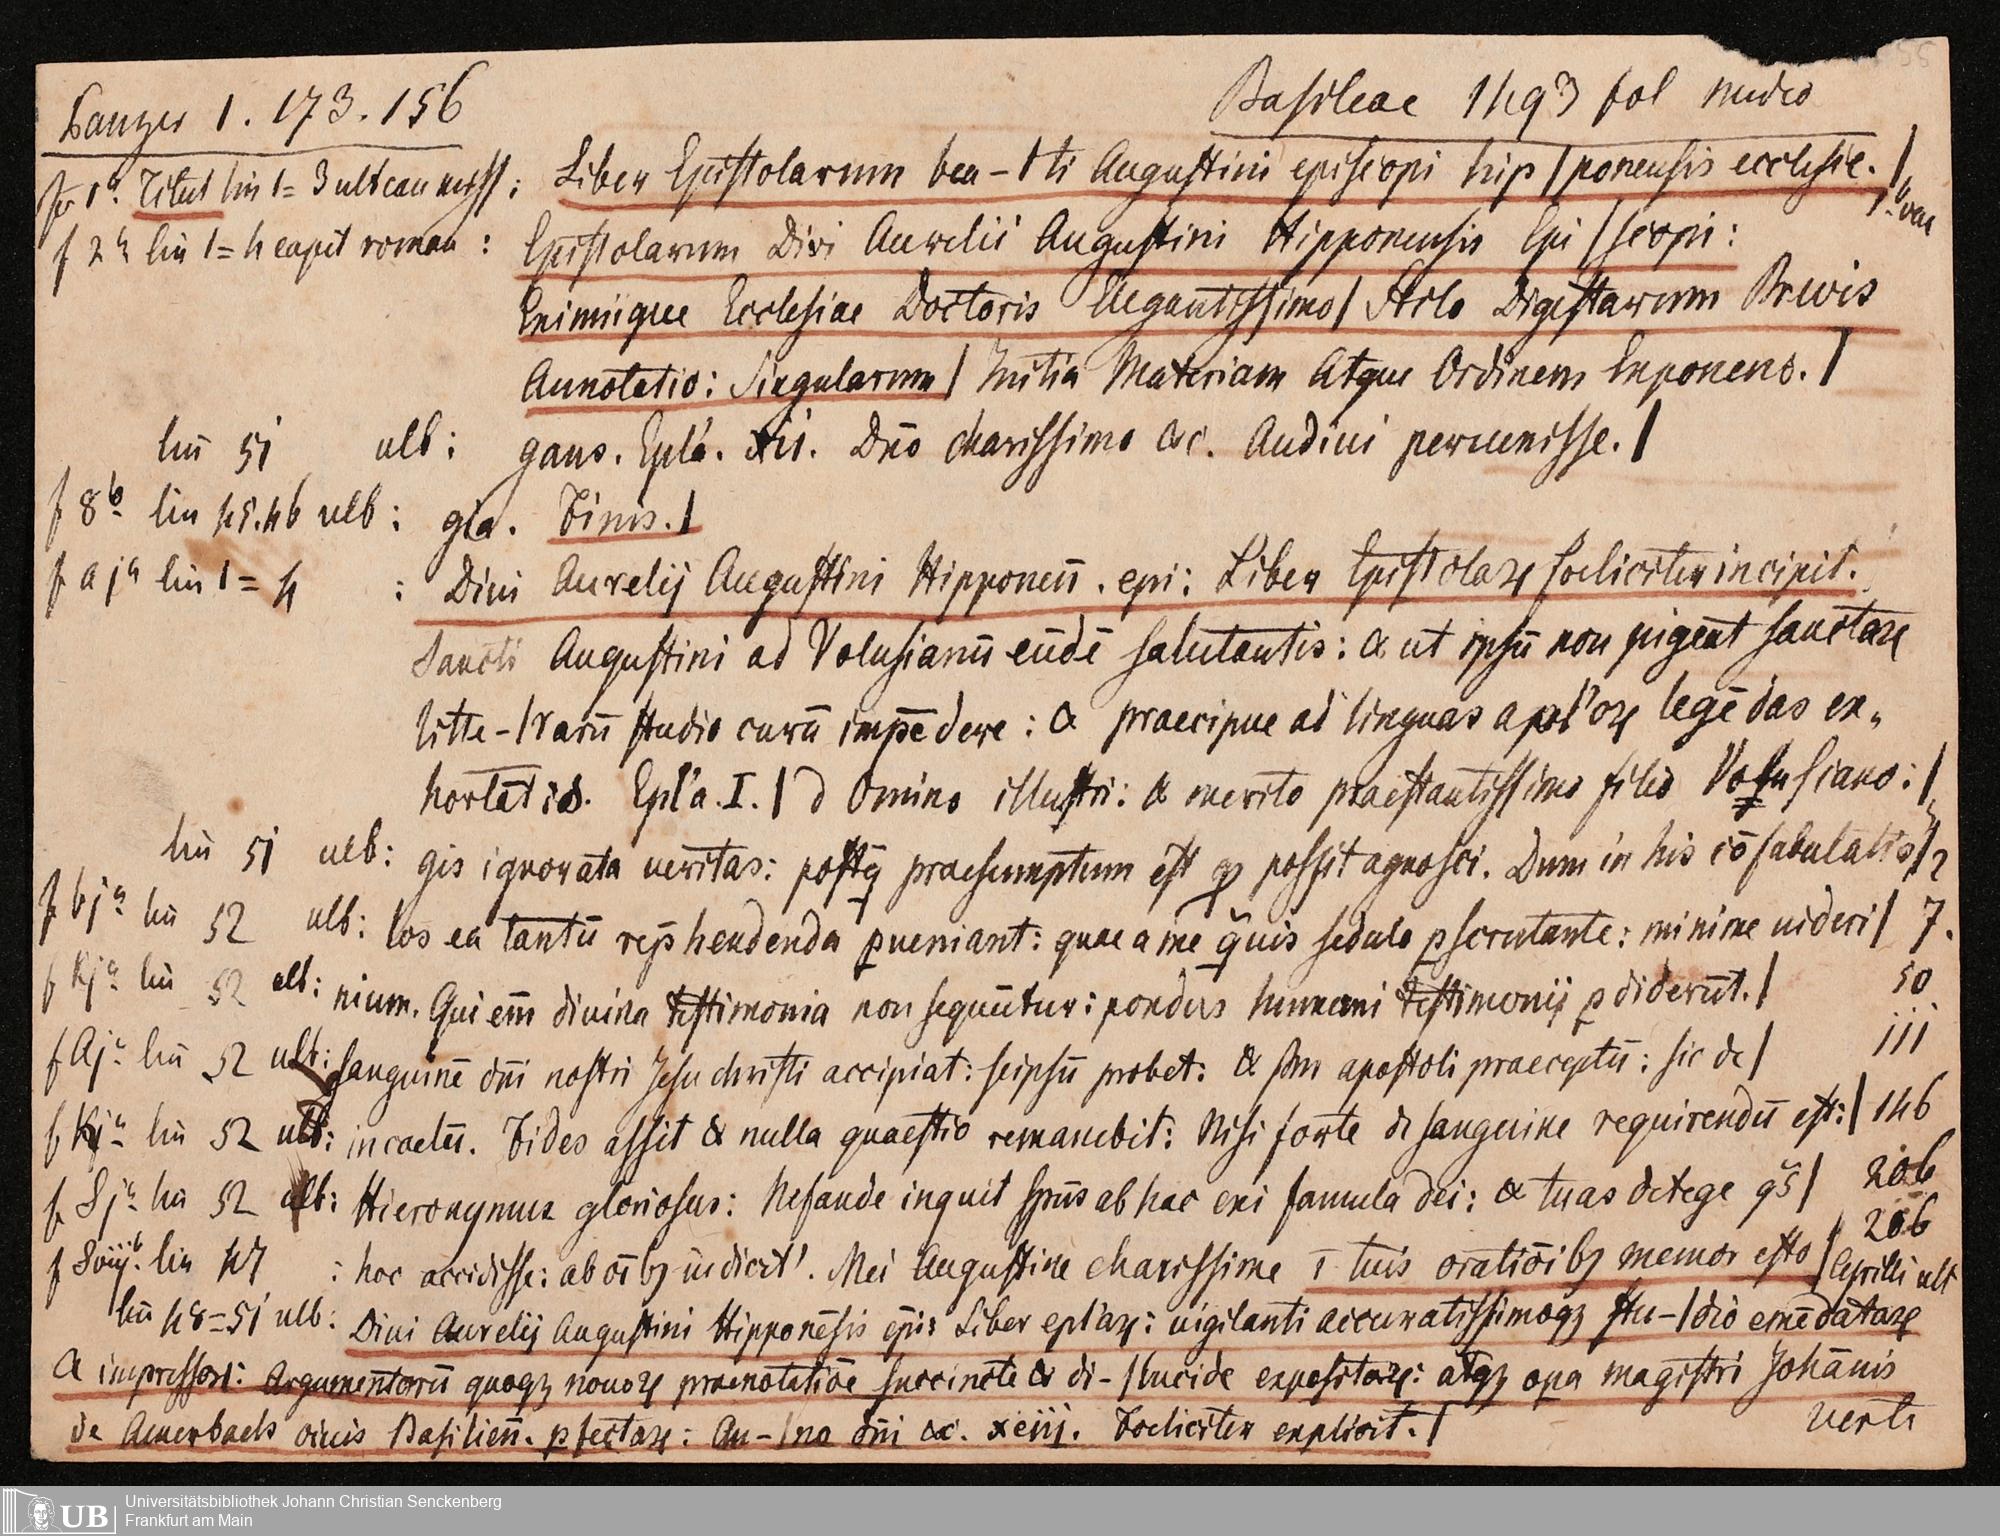 Panzer 1. 173. 156 Basileae 1493 fol medio
f 1a Titul lin 1=3 : Liber Epistolarum bea-|ti Augustini episcopi hip|ponensis ecclesie.|
1b vac
f 2a lin 1=4 capit roman : Epistolarum Divi Aurelii Augustini Hipponensis Epi|scopi:
Eximiique Ecclesiae Doctoris Elegantissimo| Stilo Digestarum Brevis
Annotatio: Singularum| Initia Materiam Atque Ordinem Exponens.|
lin 51 ult: gans. Epl'a. xii. Dn̄o charissimo &c. Audiui peruenisse.|
f 8b lin 45.46 ult: gia. Finis.|
f aja lin 1=4 : Diui Aurelij Augustini Hipponen̄. epi: Liber Epistolaꝝ foeliciter incipit.
Sancti Augustini ad Volusianū eūdē salutantis: & ut ipsū non pigeat sanctaꝝ
litte-|rarū studio curā impēdere: & praecipue ad linguas apl'oꝝ legēdas ex-
hortatio. Epl'a. I.| d Omino illustri: & merito praestantissimo filio Volusiano:|
lin 51 ult: gis ignorata ueritas: postq̄ praesumptum est ꝙ possit agnosci. Dum in his cōfabulatis| 2
f bja lin 52 ult: los ea tantū rep̄hendenda ꝑueniant: quae a me q̄uis sedulo ꝑscrutante: minime uideri| 7.
f kja lin 52 ult: nium. Qui em̄ diuina testimonia non sequūtur: pondus humani testimonij ꝑdiderūt.| 50
f Aja lin 52 ult: sanguinē dn̄i nostri Jesu christi accipiat: seipsū probet: & apostoli praeceptū: sic de| 111
f Kja lin 52 ult: in caelū. Fides assit & nulla quaestio remanebit: Nisi forte de sanguine requirendū est:| 146
f Sja lin 52 ult: Hieronymus gloriosus: Nefande inquit sp̄us ab hac exi famula dei: & tuas detege | 206
f Sviijb lin 47 : hoc accidisse: ab oībꝫ . Mei Augustine charissime ī tuis oratiōibꝫ memor esto| 206
lin 48=51 ult: Diui Aurelij Augustini Hipponēsis ep̄i: Liber epl'aꝝ: uigilanti accuratissimoqꝫ stu-|dio emēdataꝝ
& impressaꝝ: Argumentorū quoqꝫ nouoꝝ praenotatiōe succincte & di-|lucide expositaꝝ: atqꝫ opa magistri Johānis
de Amerbach ciuis Basilien̄. ꝑfectaꝝ: An-|no dn̄i &c. xciij. Foeliciter explicit.| verte
Universitätsbibliothek Johann Christian Senckenberg
UB Frankfurt am Main